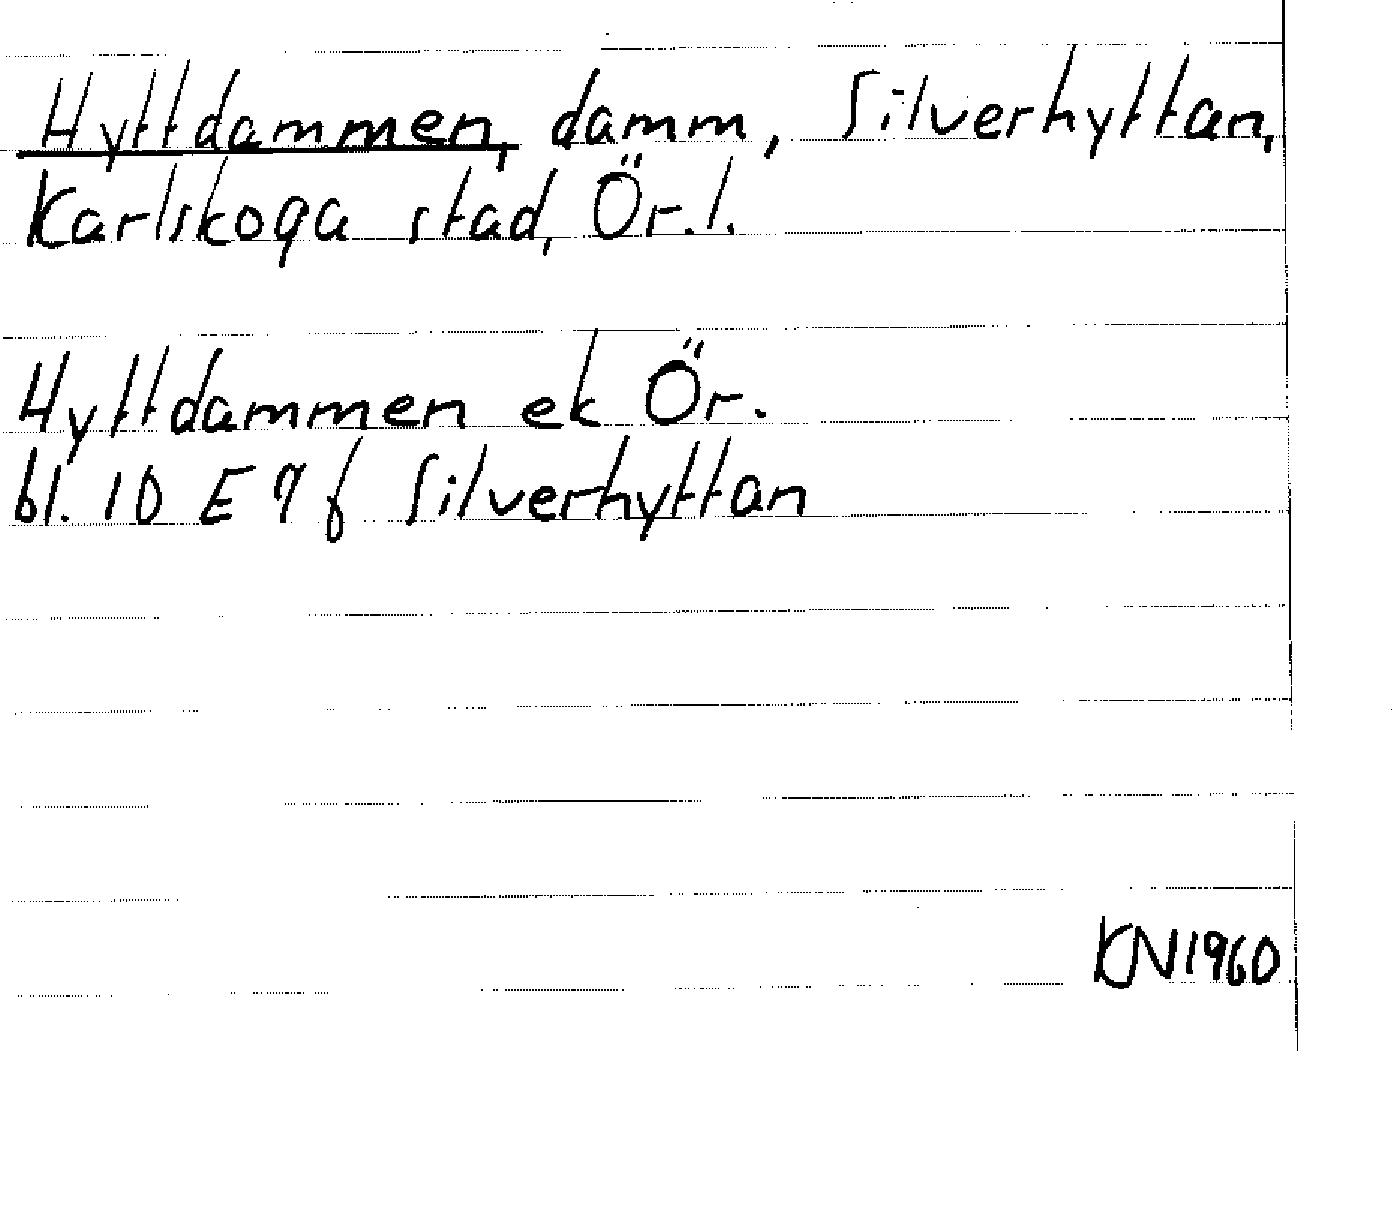 Hyttdammen, damm, Silverhyttan,
Karlskoga stad, Ör.l.
Hyttdammen ek Ör.
bl. 10 E 9 f Silverhyttan
KN1960